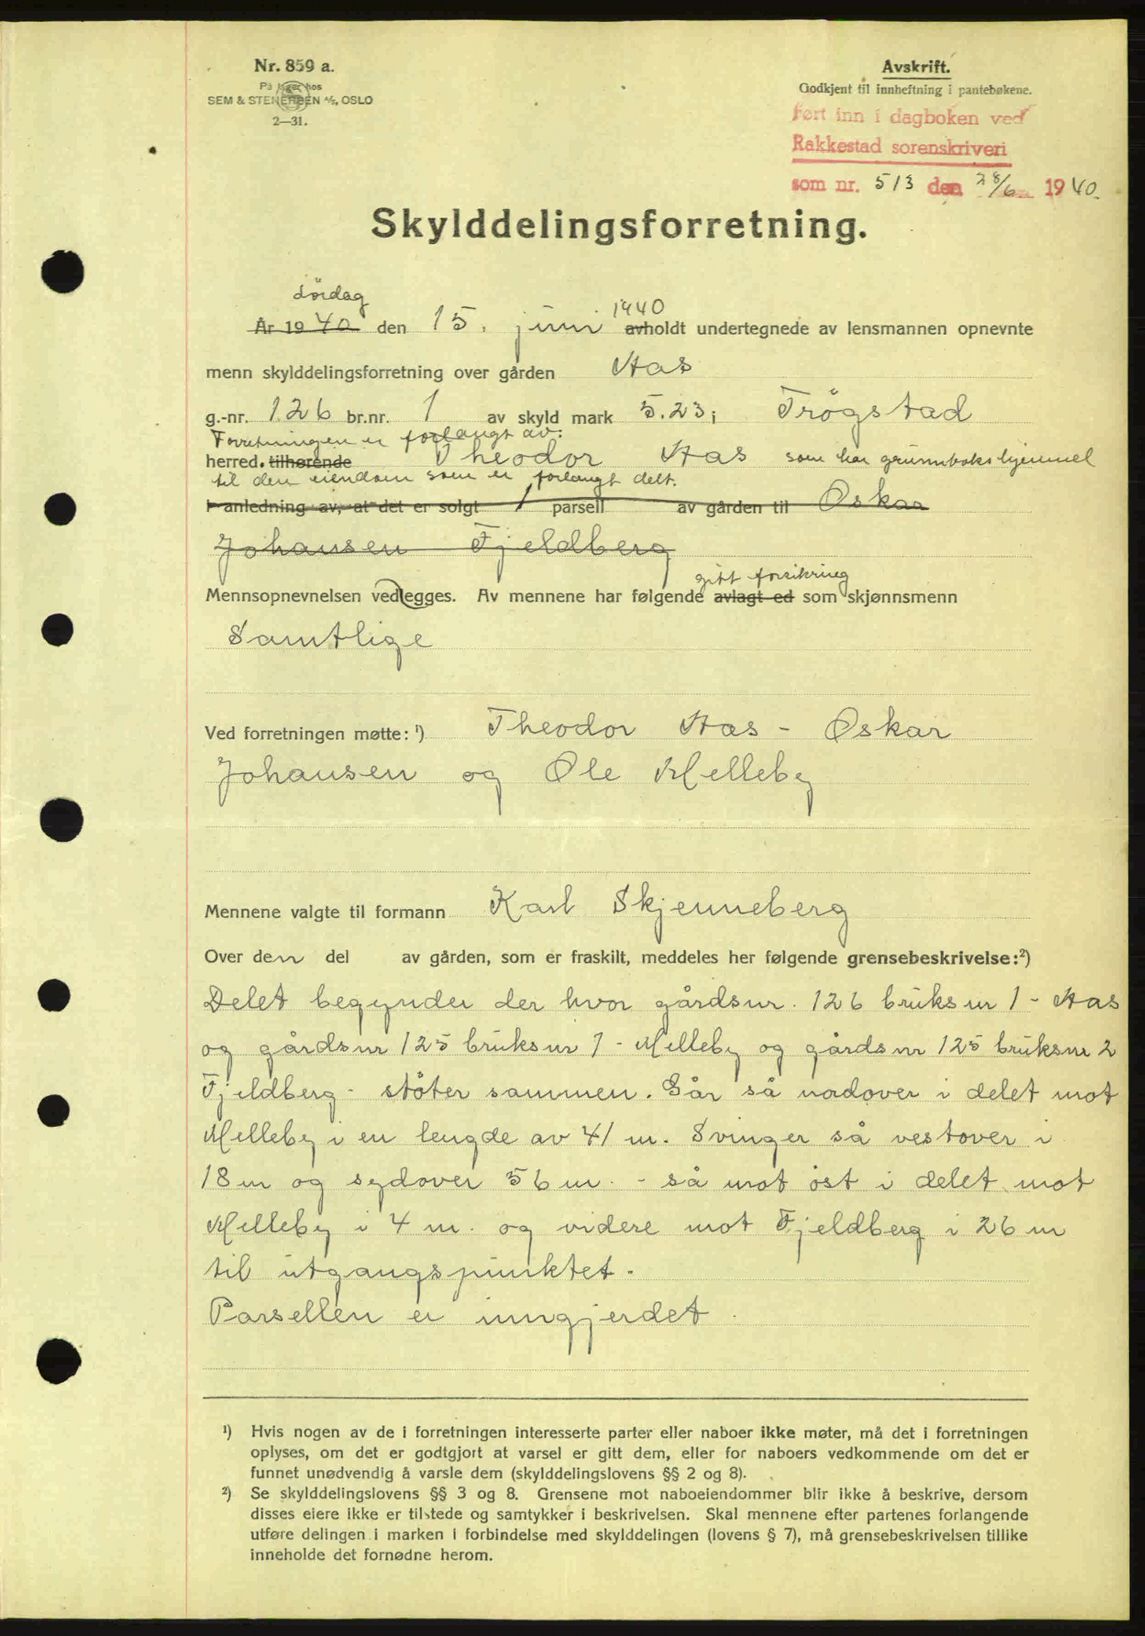 Nr. 859 a.
På lager hos
SEM & STENERSEN A/S, OSLO
2—31.
Avskrift.
Godkjent til innheftning i pantebøkene.
Ført inn i dagboken ved
Rakkestad sorenskriveri
som nr. 513 den 28/6 1940.
Skylddelingsforretning.
Lördag
År 1940 den 15. juni 1940 avholdt undertegnede av lensmannen opnevnte
menn skylddelingsforretning over gården Aas
g.-nr. 126 br.nr. 1 av skyld mark 5.23 i Trögstad
Forretningen er forlangt av:
herred. tilhørende Theodor Aas som har grunnboks hjemmel
til den eiendom som er forlangt delt.
I anledning av, at det er solgt 1 parsell av gården til Oskar
Johansen Fjeldberg
gitt forsikring
Mennsopnevnelsen vedlegges. Av mennene har følgende avlagt ed som skjønnsmenn
Samtlige
Ved forretningen møtte: ¹) Theodor Aas - Oskar
Johansen og Ole Melleby
Mennene valgte til formann Karl Skjenneberg
Over den del av gården, som er fraskilt, meddeles her følgende grensebeskrivelse:²)
Delet begynder der hvor gårdsnr. 126 bruksnr 1 - Aas
og gårdsnr 125 bruksnr 1 - Melleby og gårdsnr 125 bruksnr 2
Fjeldberg - stöter sammen. Går så nordover i delet mot
Melleby i en lengde av 41 m. Svinger så vestover i
18 m og sydover 56 m. - så mot öst i delet mot
Melleby i 4 m. og videre mot Fjeldberg i 26 m
til utgangspunktet.
Parsellen er inngjerdet.
¹) Hvis nogen av de i forretningen interesserte parter eller naboer ikke møter, må det i forretningen
oplyses, om det er godtgjort at varsel er gitt dem, eller for naboers vedkommende om det er
funnet unødvendig å varsle dem (skylddelingslovens §§ 2 og 8).
²) Se skylddelingslovens §§ 3 og 8. Grensene mot naboeiendommer blir ikke å beskrive, dersom
disses eiere ikke er tilstede og samtykker i beskrivelsen. Skal mennene efter partenes forlangende
utføre delingen i marken i forbindelse med skylddelingen (lovens § 7), må grensebeskrivelsen tillike
inneholde det fornødne herom.